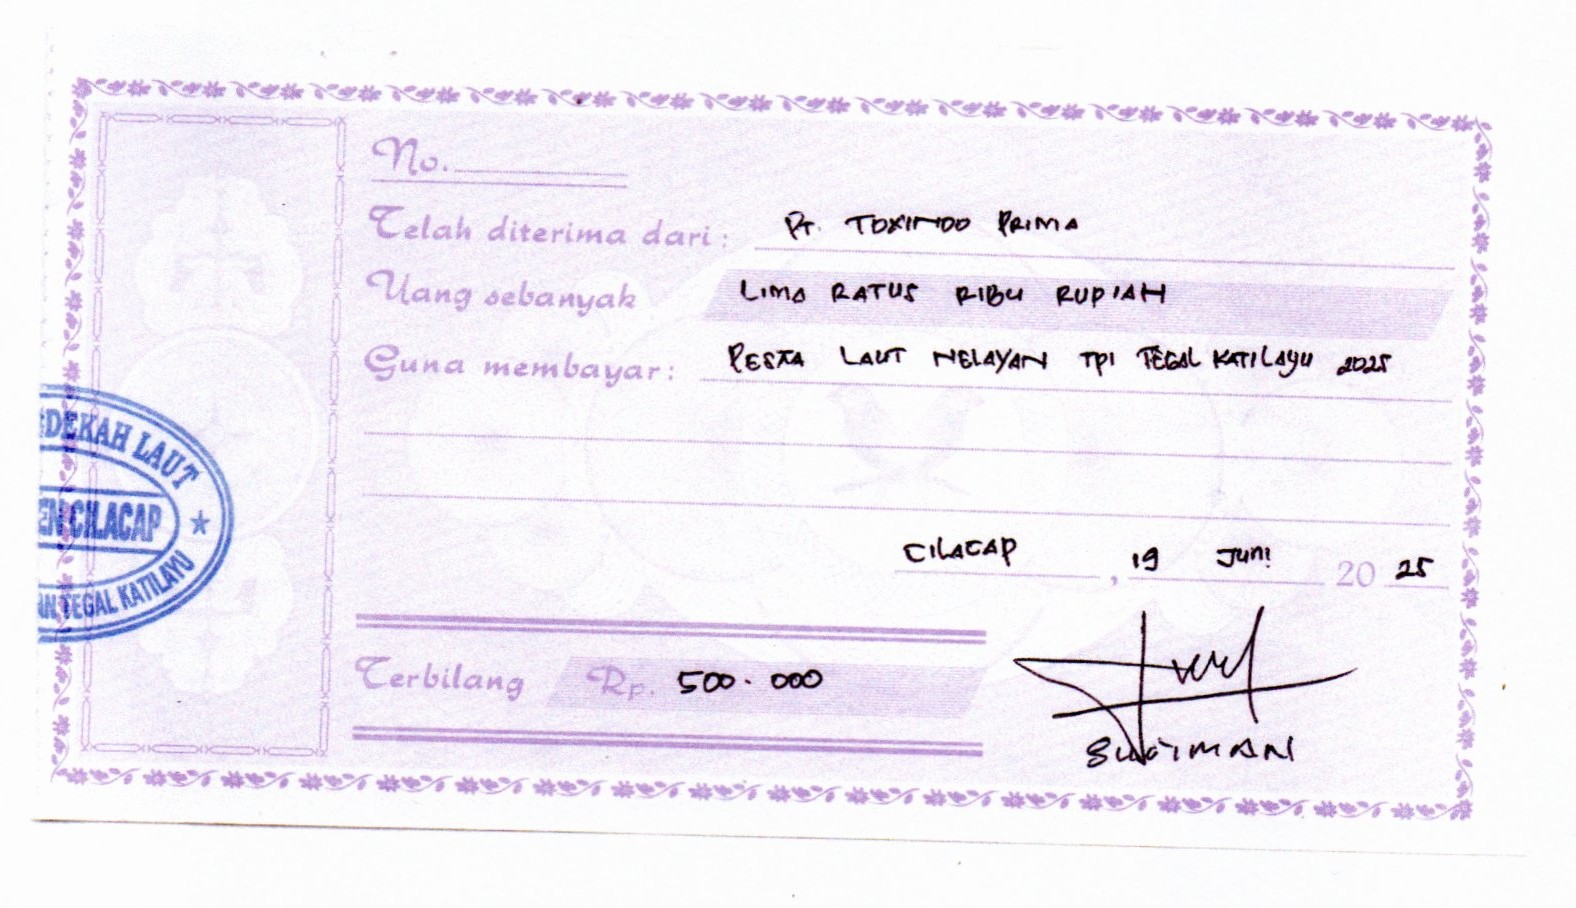 No.
Telah diterima dari : PT. TOXINDO PRIMA
Uang sebanyak LIMA RATUS RIBU RUPIAH
Guna membayar : PESTA LAUT NELAYAN TPI TEGAL KATILAYU 2025
DEKAH LAUT
EN CILACAP
AN TEGAL KATILAYU
CILACAP , 19 Juni 20 25
Terbilang Rp. 500.000